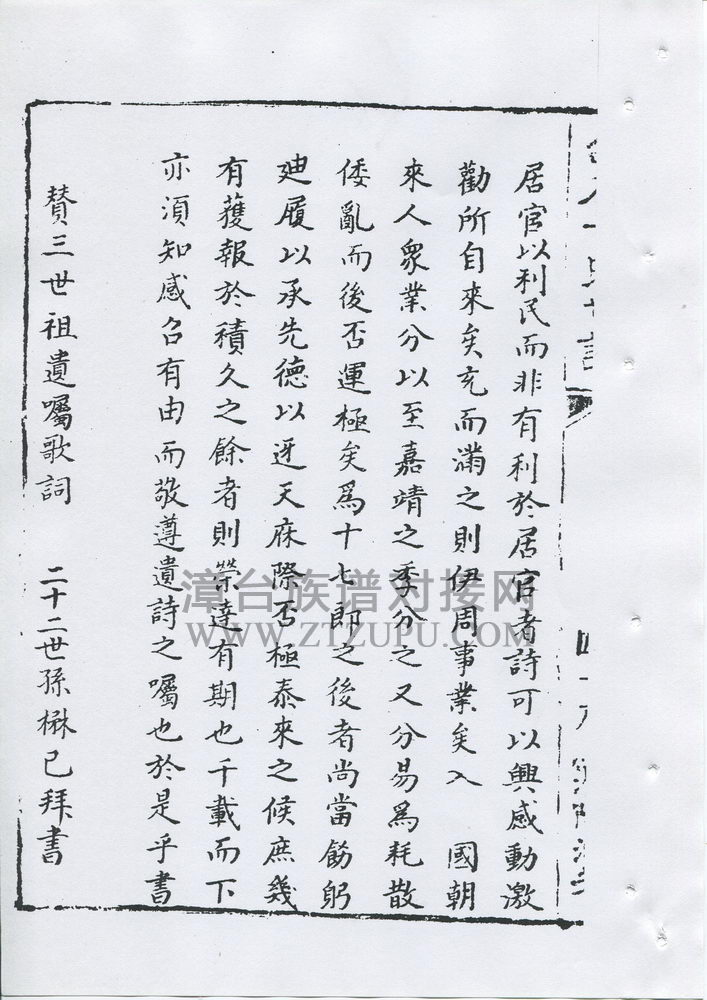 居官以利民而非有利於居官者詩可以興感動激
勸所自來矣充而滿之則伊周事業矣入 國朝
來人衆業分以至嘉靖之季分之又分易為耗散
倭亂而後否運極矣爲十七郎之後者尚當飭躬
廸履以承先德以迓天庥際否極泰來之候庶幾
有蒦報於積久之餘者則荣達有期也千載而下
亦須知感召有由而敬遵遺詩之囑也於是乎書
賛三世祖遺囑歌詞 二十二世孫楙已拜書
漳台族谱对接网
WWW.ZTZUPU.COM